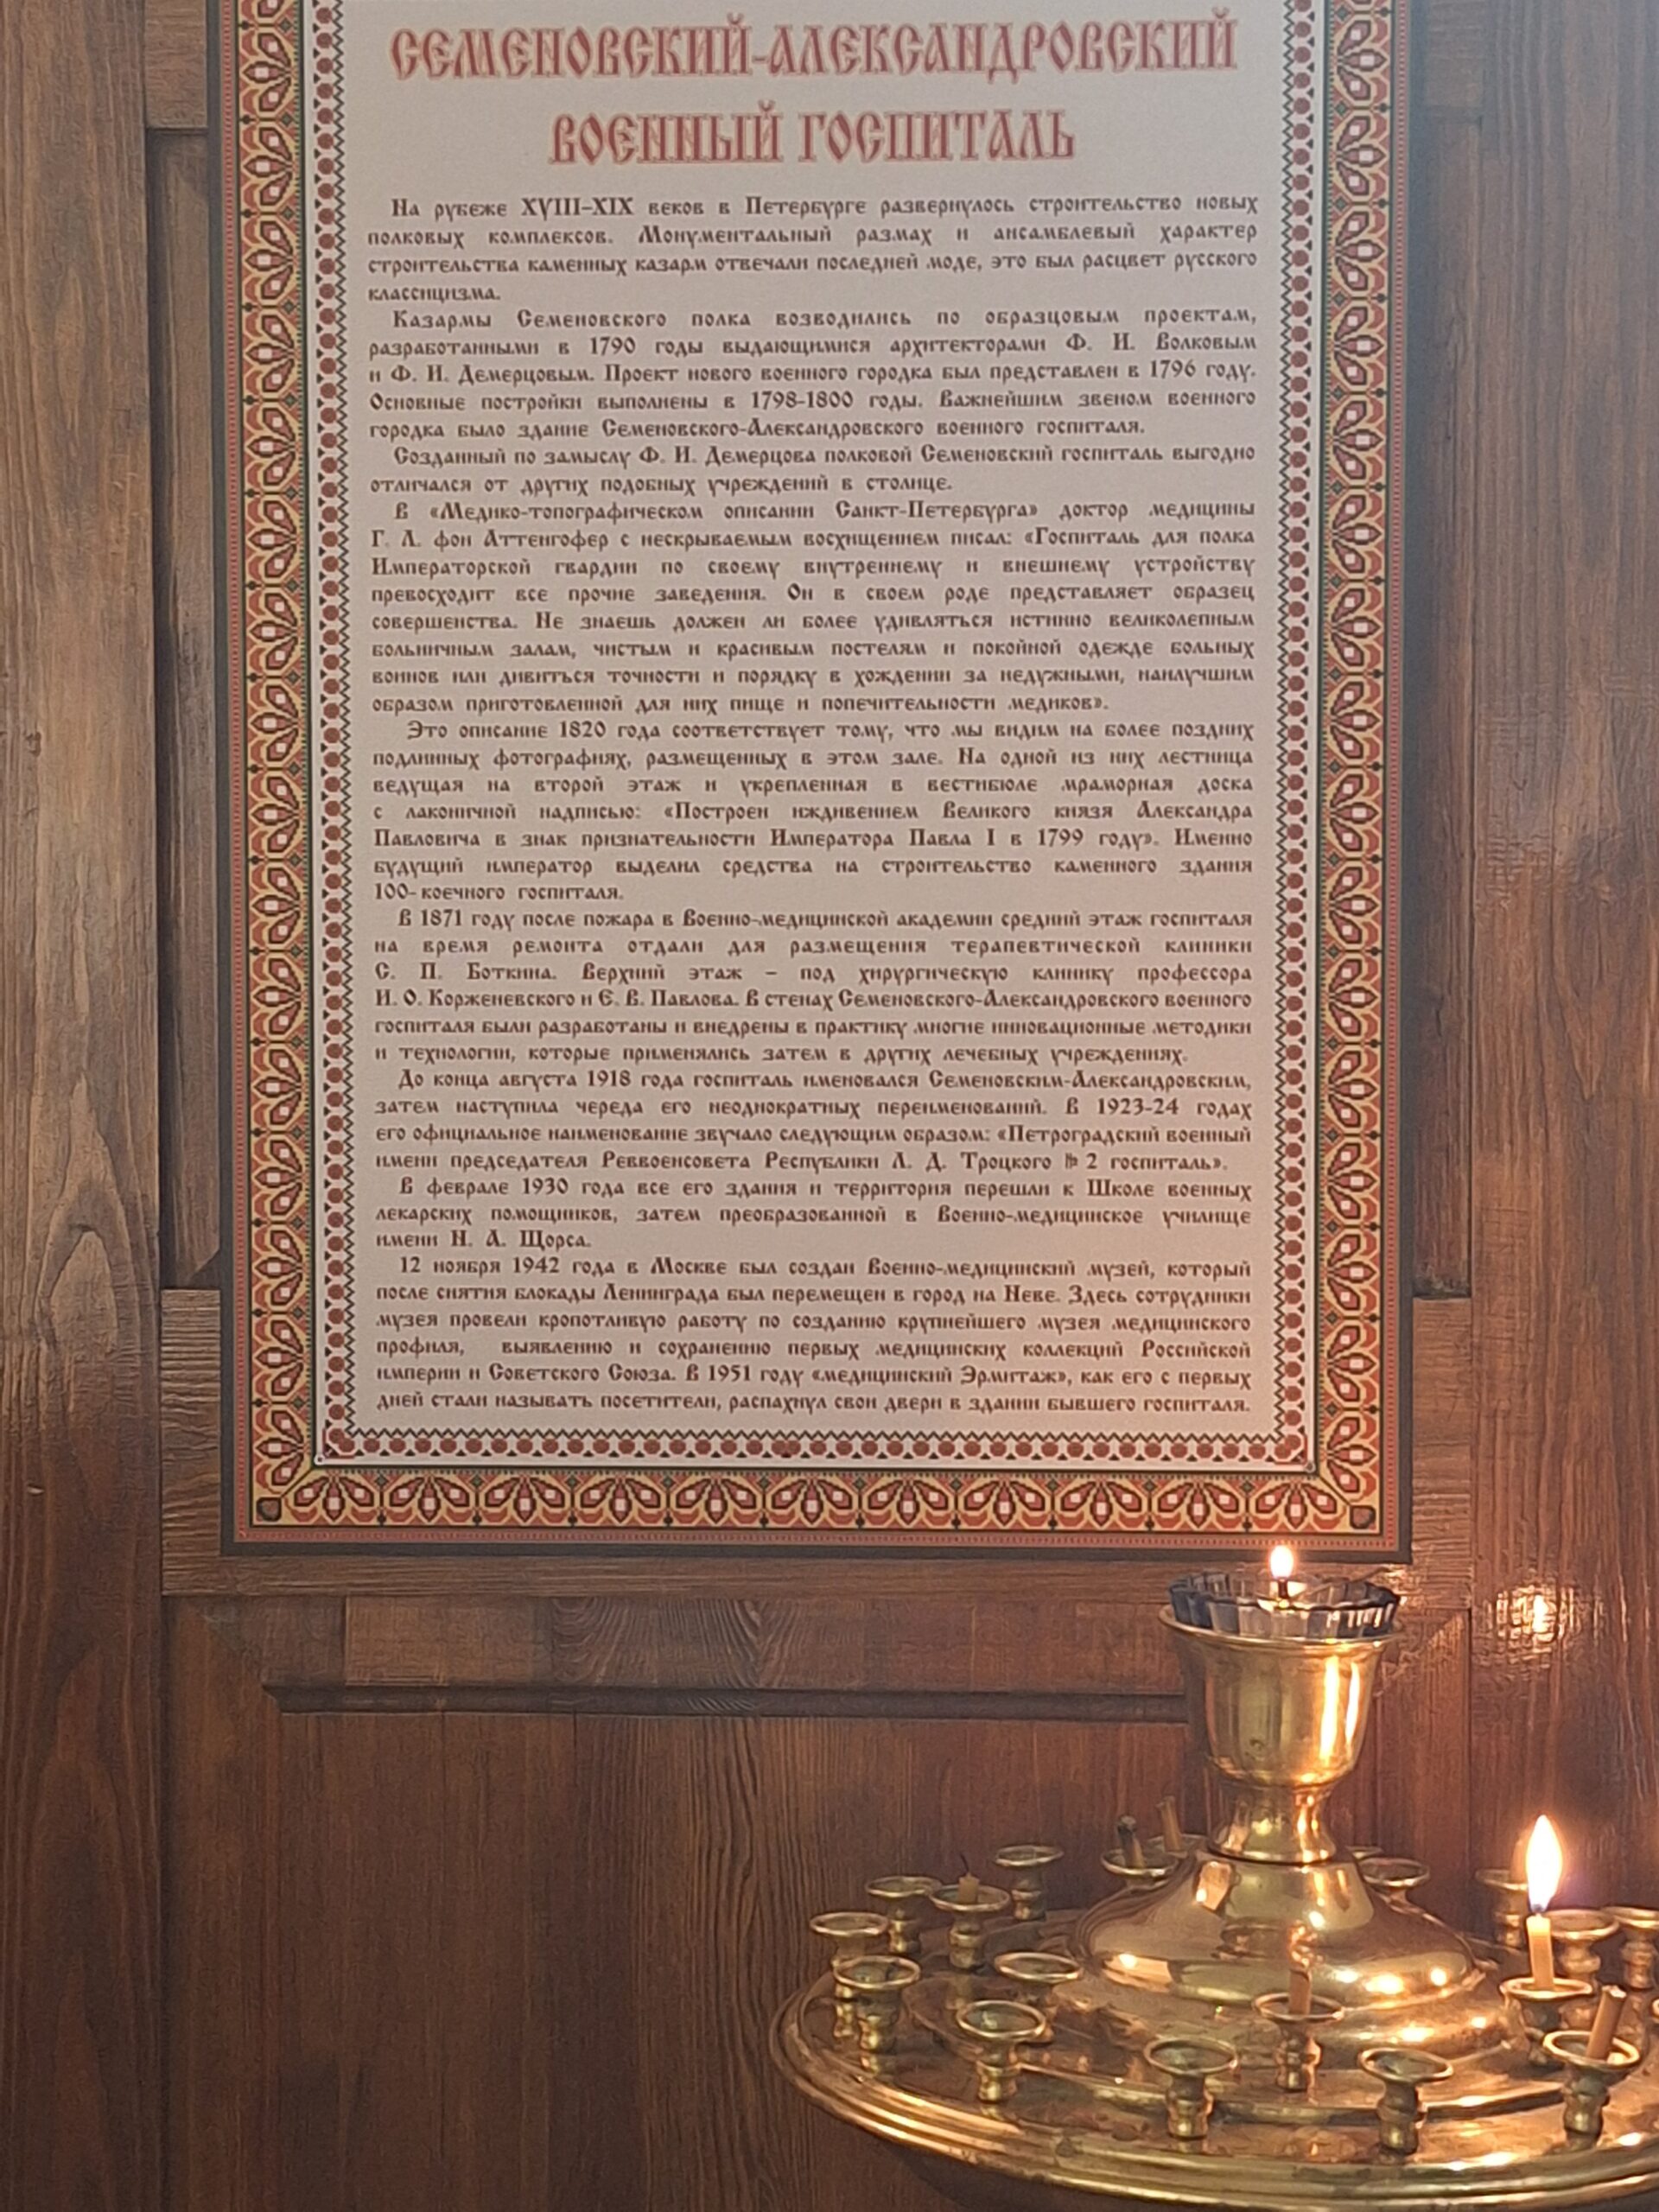 СЕМЕНОВСКИЙ-АЛЕКСАНДРОВСКИЙ
ВОЕННЫЙ ГОСПИТАЛЬ
На рубеже XVIII–XIX веков в Петербурге развернулось строительство новых
полковых комплексов. Монументальный размах и ансамблевый характер
строительства каменных казарм отвечали последней моде, это был расцвет русского
классицизма.
Казармы Семеновского полка возводились по образцовым проектам,
разработанными в 1790 годы выдающимися архитекторами Ф. И. Волковым
и Ф. И. Демерцовым. Проект нового военного городка был представлен в 1796 году.
Основные постройки выполнены в 1798-1800 годы. Важнейшим звеном военного
городка было здание Семеновского-Александровского военного госпиталя.
Созданный по замыслу Ф. И. Демерцова полковой Семеновский госпиталь выгодно
отличался от других подобных учреждений в столице.
В «Медико-топографическом описании Санкт-Петербурга» доктор медицины
Г. Л. фон Аттенгофер с нескрываемым восхищением писал: «Госпиталь для полка
Императорской гвардии по своему внутреннему и внешнему устройству
превосходит все прочие заведения. Он в своем роде представляет образец
совершенства. Не знаешь должен ли более удивляться истинно великолепным
больничным залам, чистым и красивым постелям и покойной одежде больных
воинов или дивиться точности и порядку в хождении за недужными, наилучшим
образом приготовленной для них пище и попечительности медиков».
Это описание 1820 года соответствует тому, что мы видим на более поздних
подлинных фотографиях, размещенных в этом зале. На одной из них лестница
ведущая на второй этаж и укрепленная в вестибюле мраморная доска
с лаконичной надписью: «Построен иждивением Великого князя Александра
Павловича в знак признательности Императора Павла I в 1799 году». Именно
будущий император выделил средства на строительство каменного здания
100-коечного госпиталя.
В 1871 году после пожара в Военно-медицинской академии средний этаж госпиталя
на время ремонта отдали для размещения терапевтической клиники
С. П. Боткина. Верхний этаж – под хирургическую клинику профессора
И. О. Корженевского и Е. В. Павлова. В стенах Семеновского-Александровского военного
госпиталя были разработаны и внедрены в практику многие инновационные методики
и технологии, которые применялись затем в других лечебных учреждениях.
До конца августа 1918 года госпиталь именовался Семеновским-Александровским,
затем наступила череда его неоднократных переименований. В 1923-24 годах
его официальное наименование звучало следующим образом: «Петроградский военный
имени председателя Реввоенсовета Республики Л. Д. Троцкого № 2 госпиталь».
В феврале 1930 года все его здания и территория перешли к Школе военных
лекарских помощников, затем преобразованной в Военно-медицинское училище
имени Н. А. Щорса.
12 ноября 1942 года в Москве был создан Военно-медицинский музей, который
после снятия блокады Ленинграда был перемещен в город на Неве. Здесь сотрудники
музея провели кропотливую работу по созданию крупнейшего музея медицинского
профиля, выявлению и сохранению первых медицинских коллекций Российской
империи и Советского Союза. В 1951 году «медицинский Эрмитаж», как его с первых
дней стали называть посетители, распахнул свои двери в здании бывшего госпиталя.